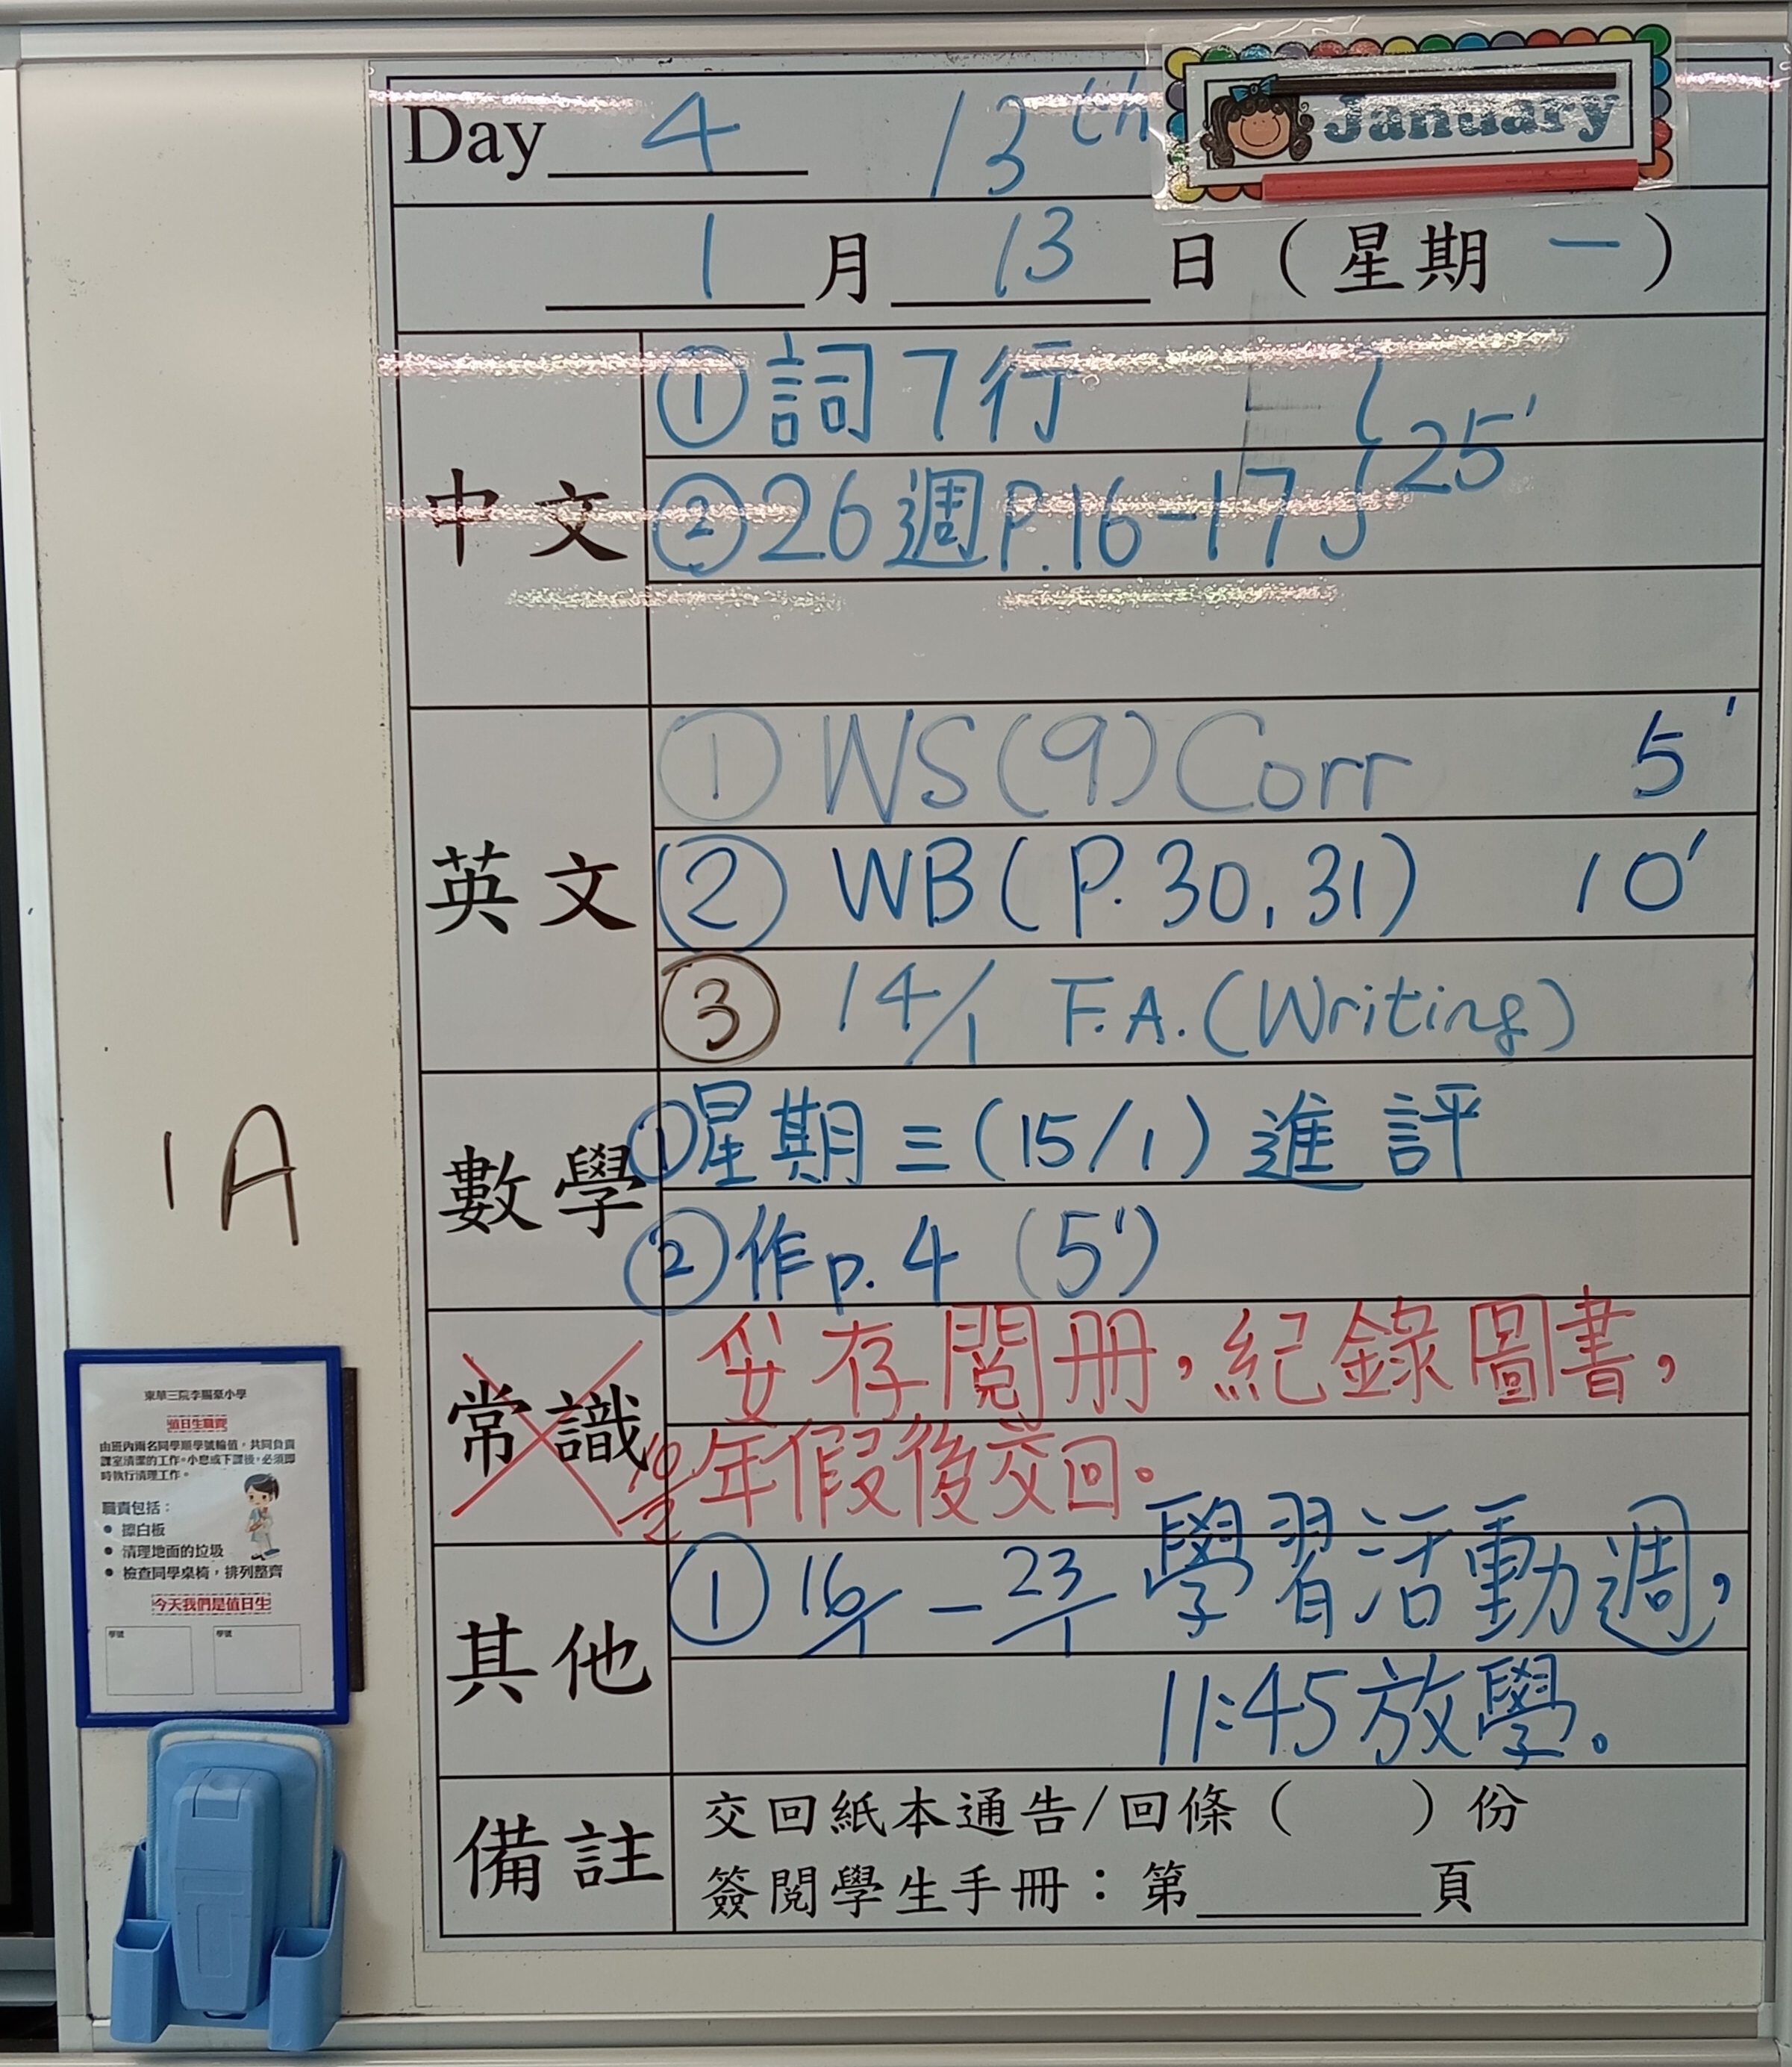 Day 4 13th January
1月13日(星期一)
中文
①詞7行
②26週P.16-17 } 25'
英文
① WS(9)Corr 5'
② WB(P.30,31) 10'
③ 14/1 F.A.(Writing)
數學
①星期三(15/1)進評
②作p.4 (5')
常識
妥存閱册,紀錄圖書,
年假後交回。
10/2
其他
① 16/1-23/1 學習活動週,
11:45放學。
備註
交回紙本通告/回條( )份
簽閱學生手冊:第______頁
1A
東華三院李賜豪小學
值日生職責
由班內兩名同學順學號輪值,共同負責
課室清潔的工作。小息或下課後,必須即
時執行清理工作。
職責包括:
• 擦白板
• 清理地面的垃圾
• 檢查同學桌椅,排列整齊
今天我們是值日生
學號 學號